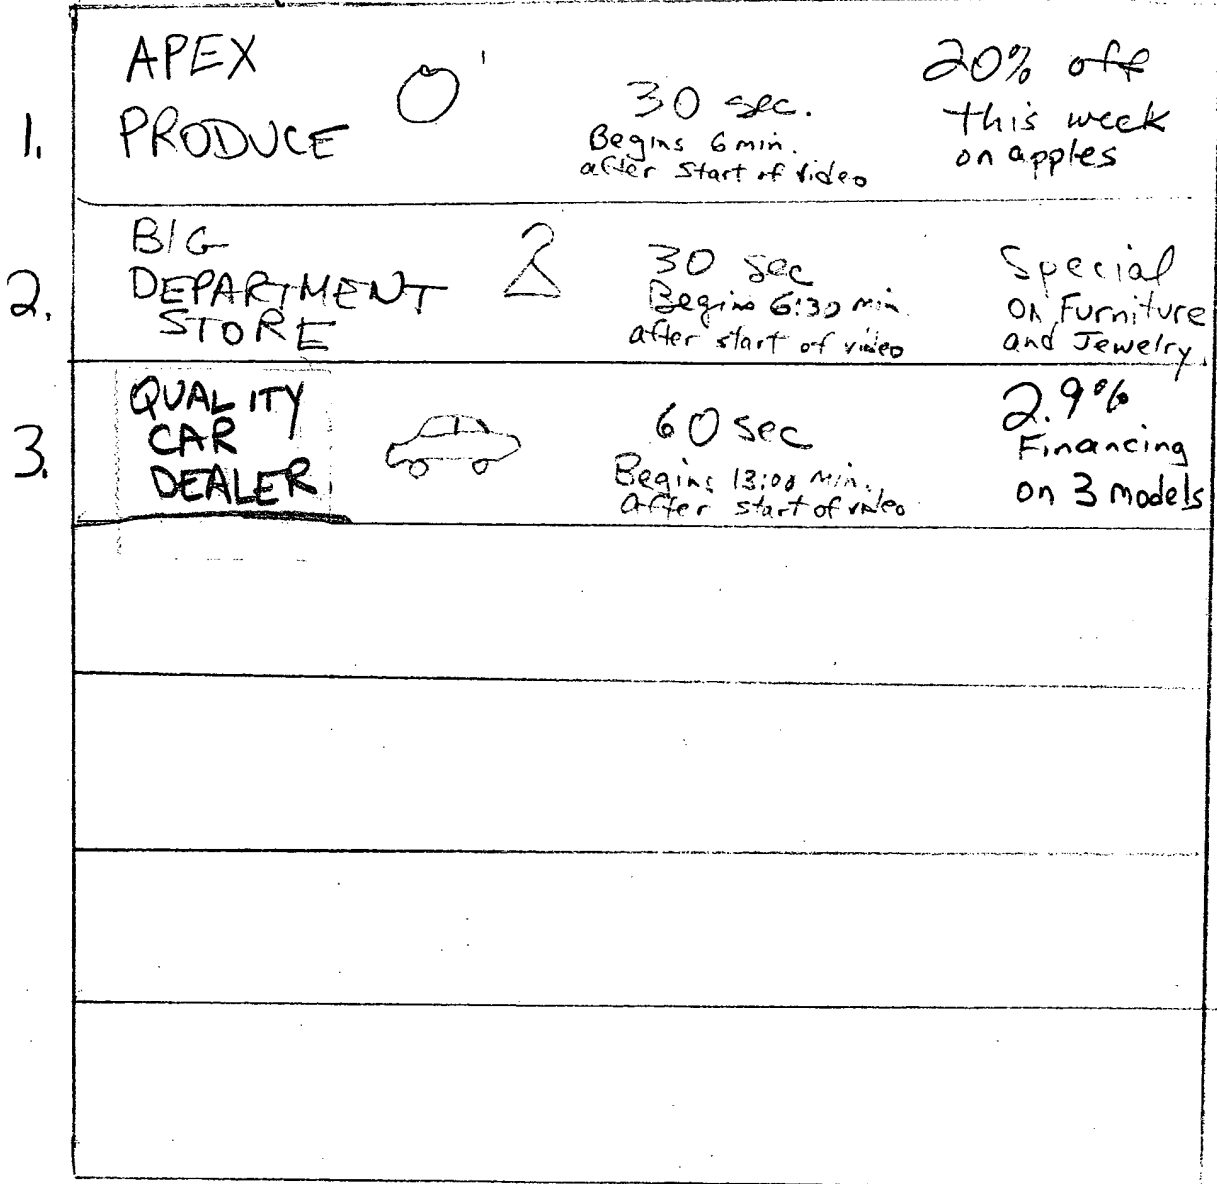 1.
APEX
PRODUCE
30 sec.
Begins 6 min.
after Start of video
20% off
this week
on apples
2.
BIG
DEPARTMENT
STORE
30 sec
Begins 6:30 min.
after start of video
Special
on Furniture
and Jewelry.
3.
QUALITY
CAR
DEALER
60 sec
Begins 13:00 Min.
After start of video
2.9%
Financing
on 3 models